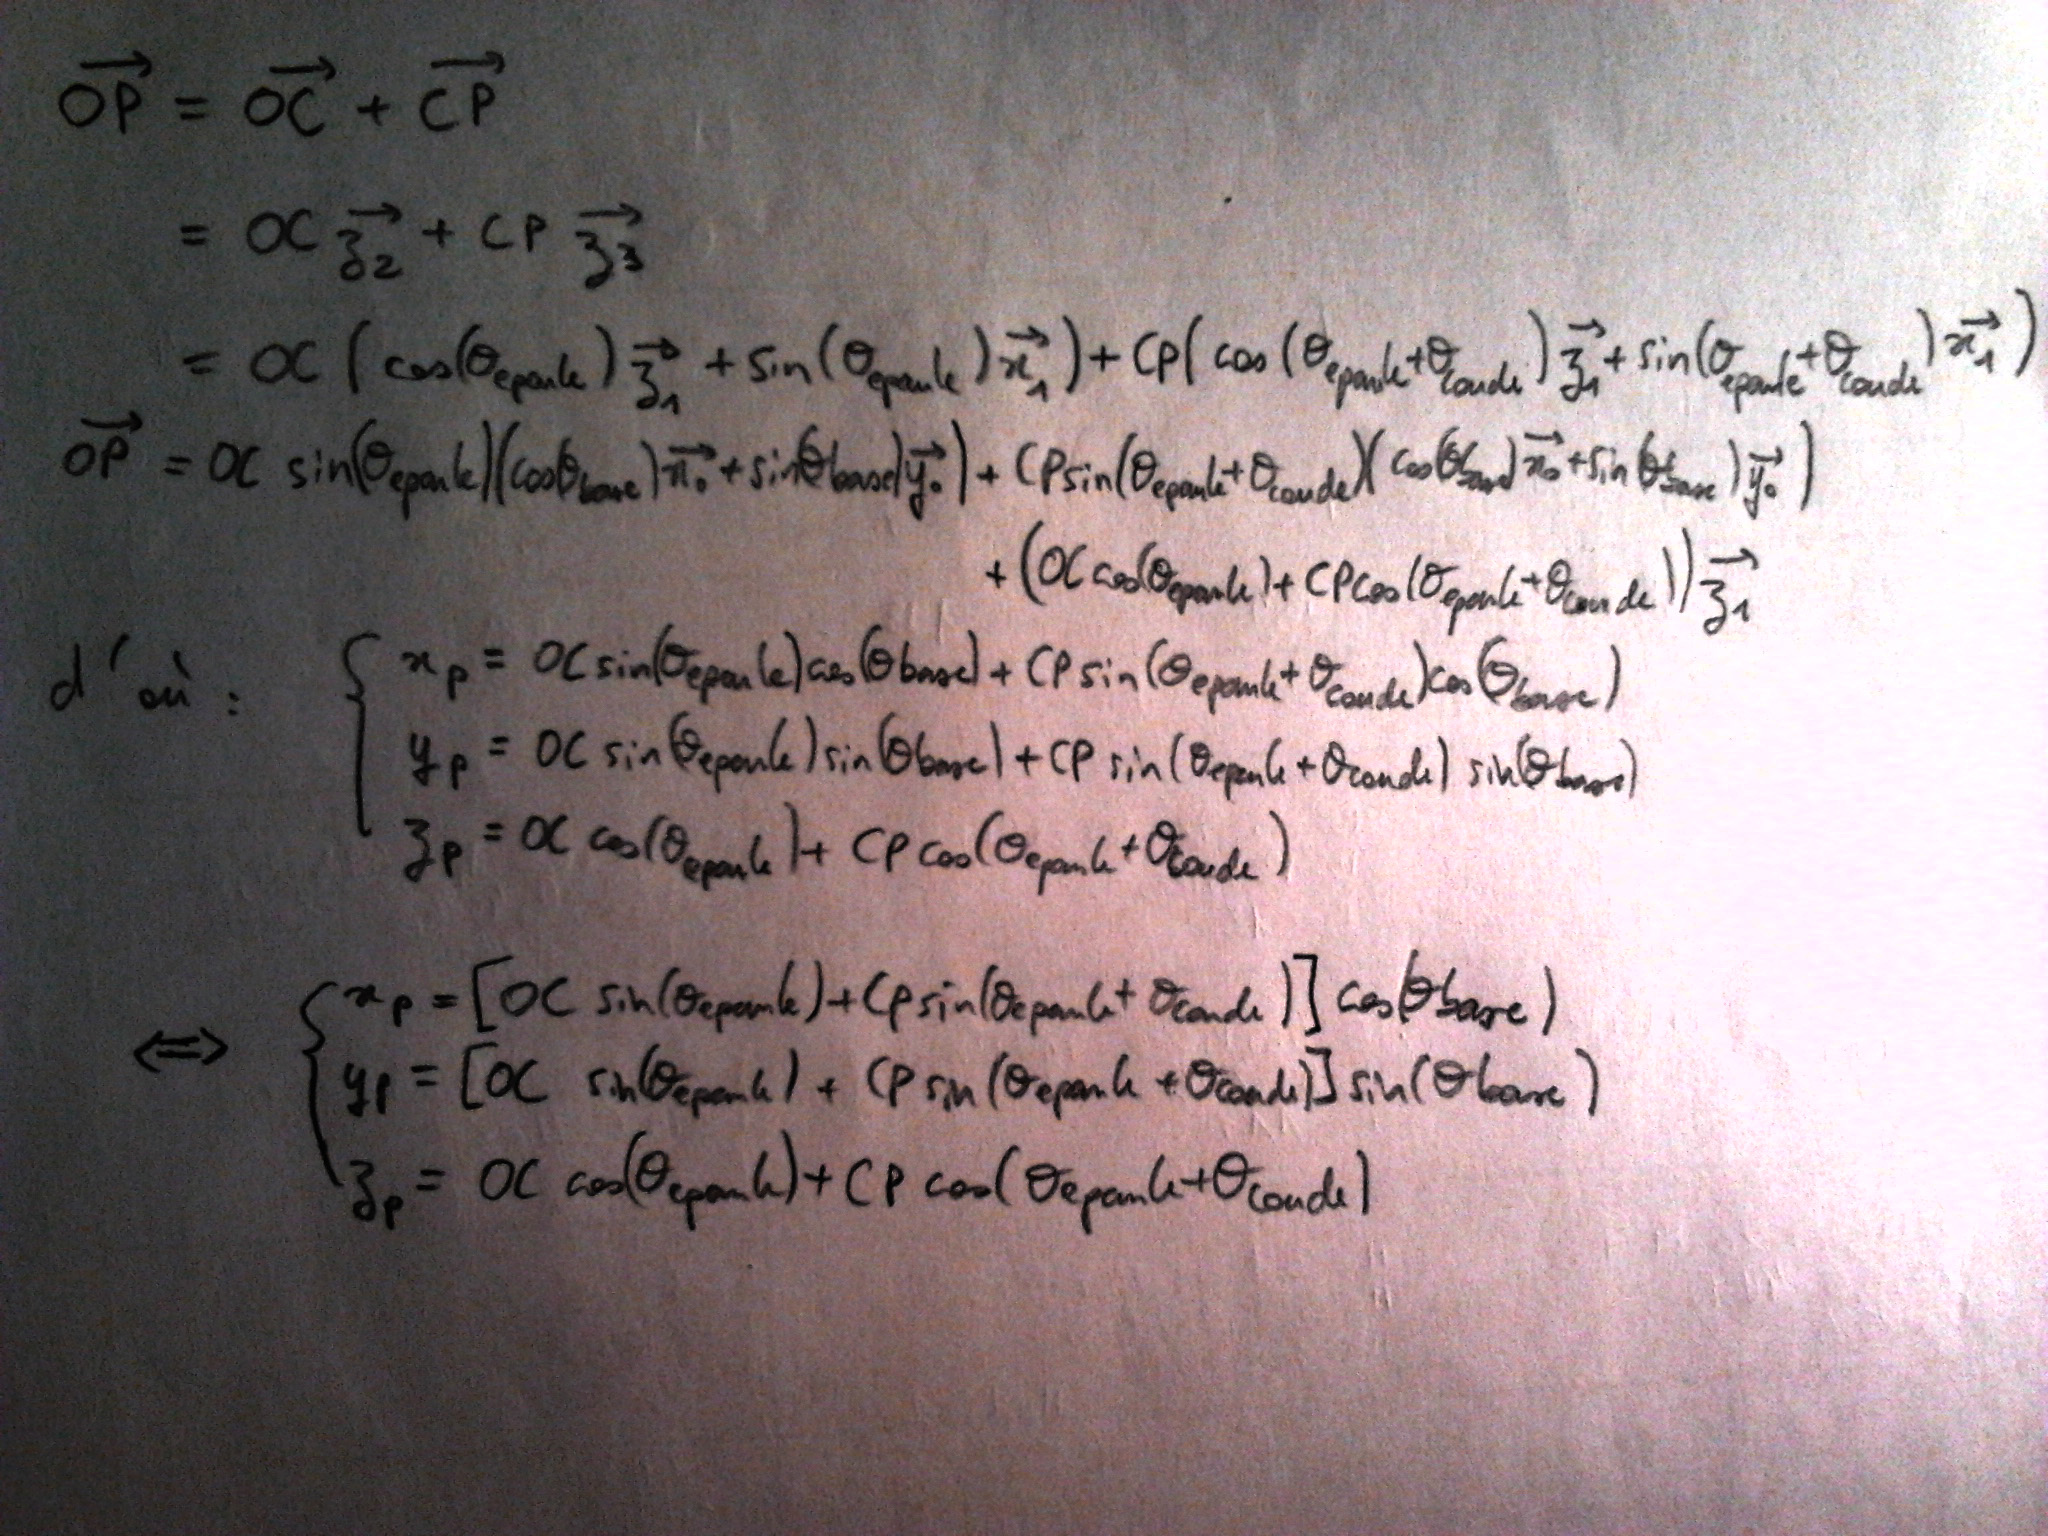 $\overrightarrow{OP} = \overrightarrow{OC} + \overrightarrow{CP}$
$= OC\,\overrightarrow{z_2} + CP\,\overrightarrow{z_3}$
$= OC\left(\cos(\theta_{epaule})\overrightarrow{z_1} + \sin(\theta_{epaule})\overrightarrow{x_1}\right) + CP\left(\cos(\theta_{epaule}+\theta_{coude})\overrightarrow{z_1} + \sin(\theta_{epaule}+\theta_{coude})\overrightarrow{x_1}\right)$
$\overrightarrow{OP} = OC\sin(\theta_{epaule})(\cos(\theta_{base})\overrightarrow{x_0} + \sin(\theta_{base})\overrightarrow{y_0}) + CP\sin(\theta_{epaule}+\theta_{coude})(\cos(\theta_{base})\overrightarrow{x_0} + \sin(\theta_{base})\overrightarrow{y_0})$
$+ \left(OC\cos(\theta_{epaule}) + CP\cos(\theta_{epaule}+\theta_{coude})\right)\overrightarrow{z_1}$
d'où : { $x_P = OC\sin(\theta_{epaule})\cos(\theta_{base}) + CP\sin(\theta_{epaule}+\theta_{coude})\cos(\theta_{base})$
$y_P = OC\sin(\theta_{epaule})\sin(\theta_{base}) + CP\sin(\theta_{epaule}+\theta_{coude})\sin(\theta_{base})$
$z_P = OC\cos(\theta_{epaule}) + CP\cos(\theta_{epaule}+\theta_{coude})$
⇔ { $x_P = [OC\sin(\theta_{epaule}) + CP\sin(\theta_{epaule}+\theta_{coude})]\cos(\theta_{base})$
$y_P = [OC\sin(\theta_{epaule}) + CP\sin(\theta_{epaule}+\theta_{coude})]\sin(\theta_{base})$
$z_P = OC\cos(\theta_{epaule}) + CP\cos(\theta_{epaule}+\theta_{coude})$